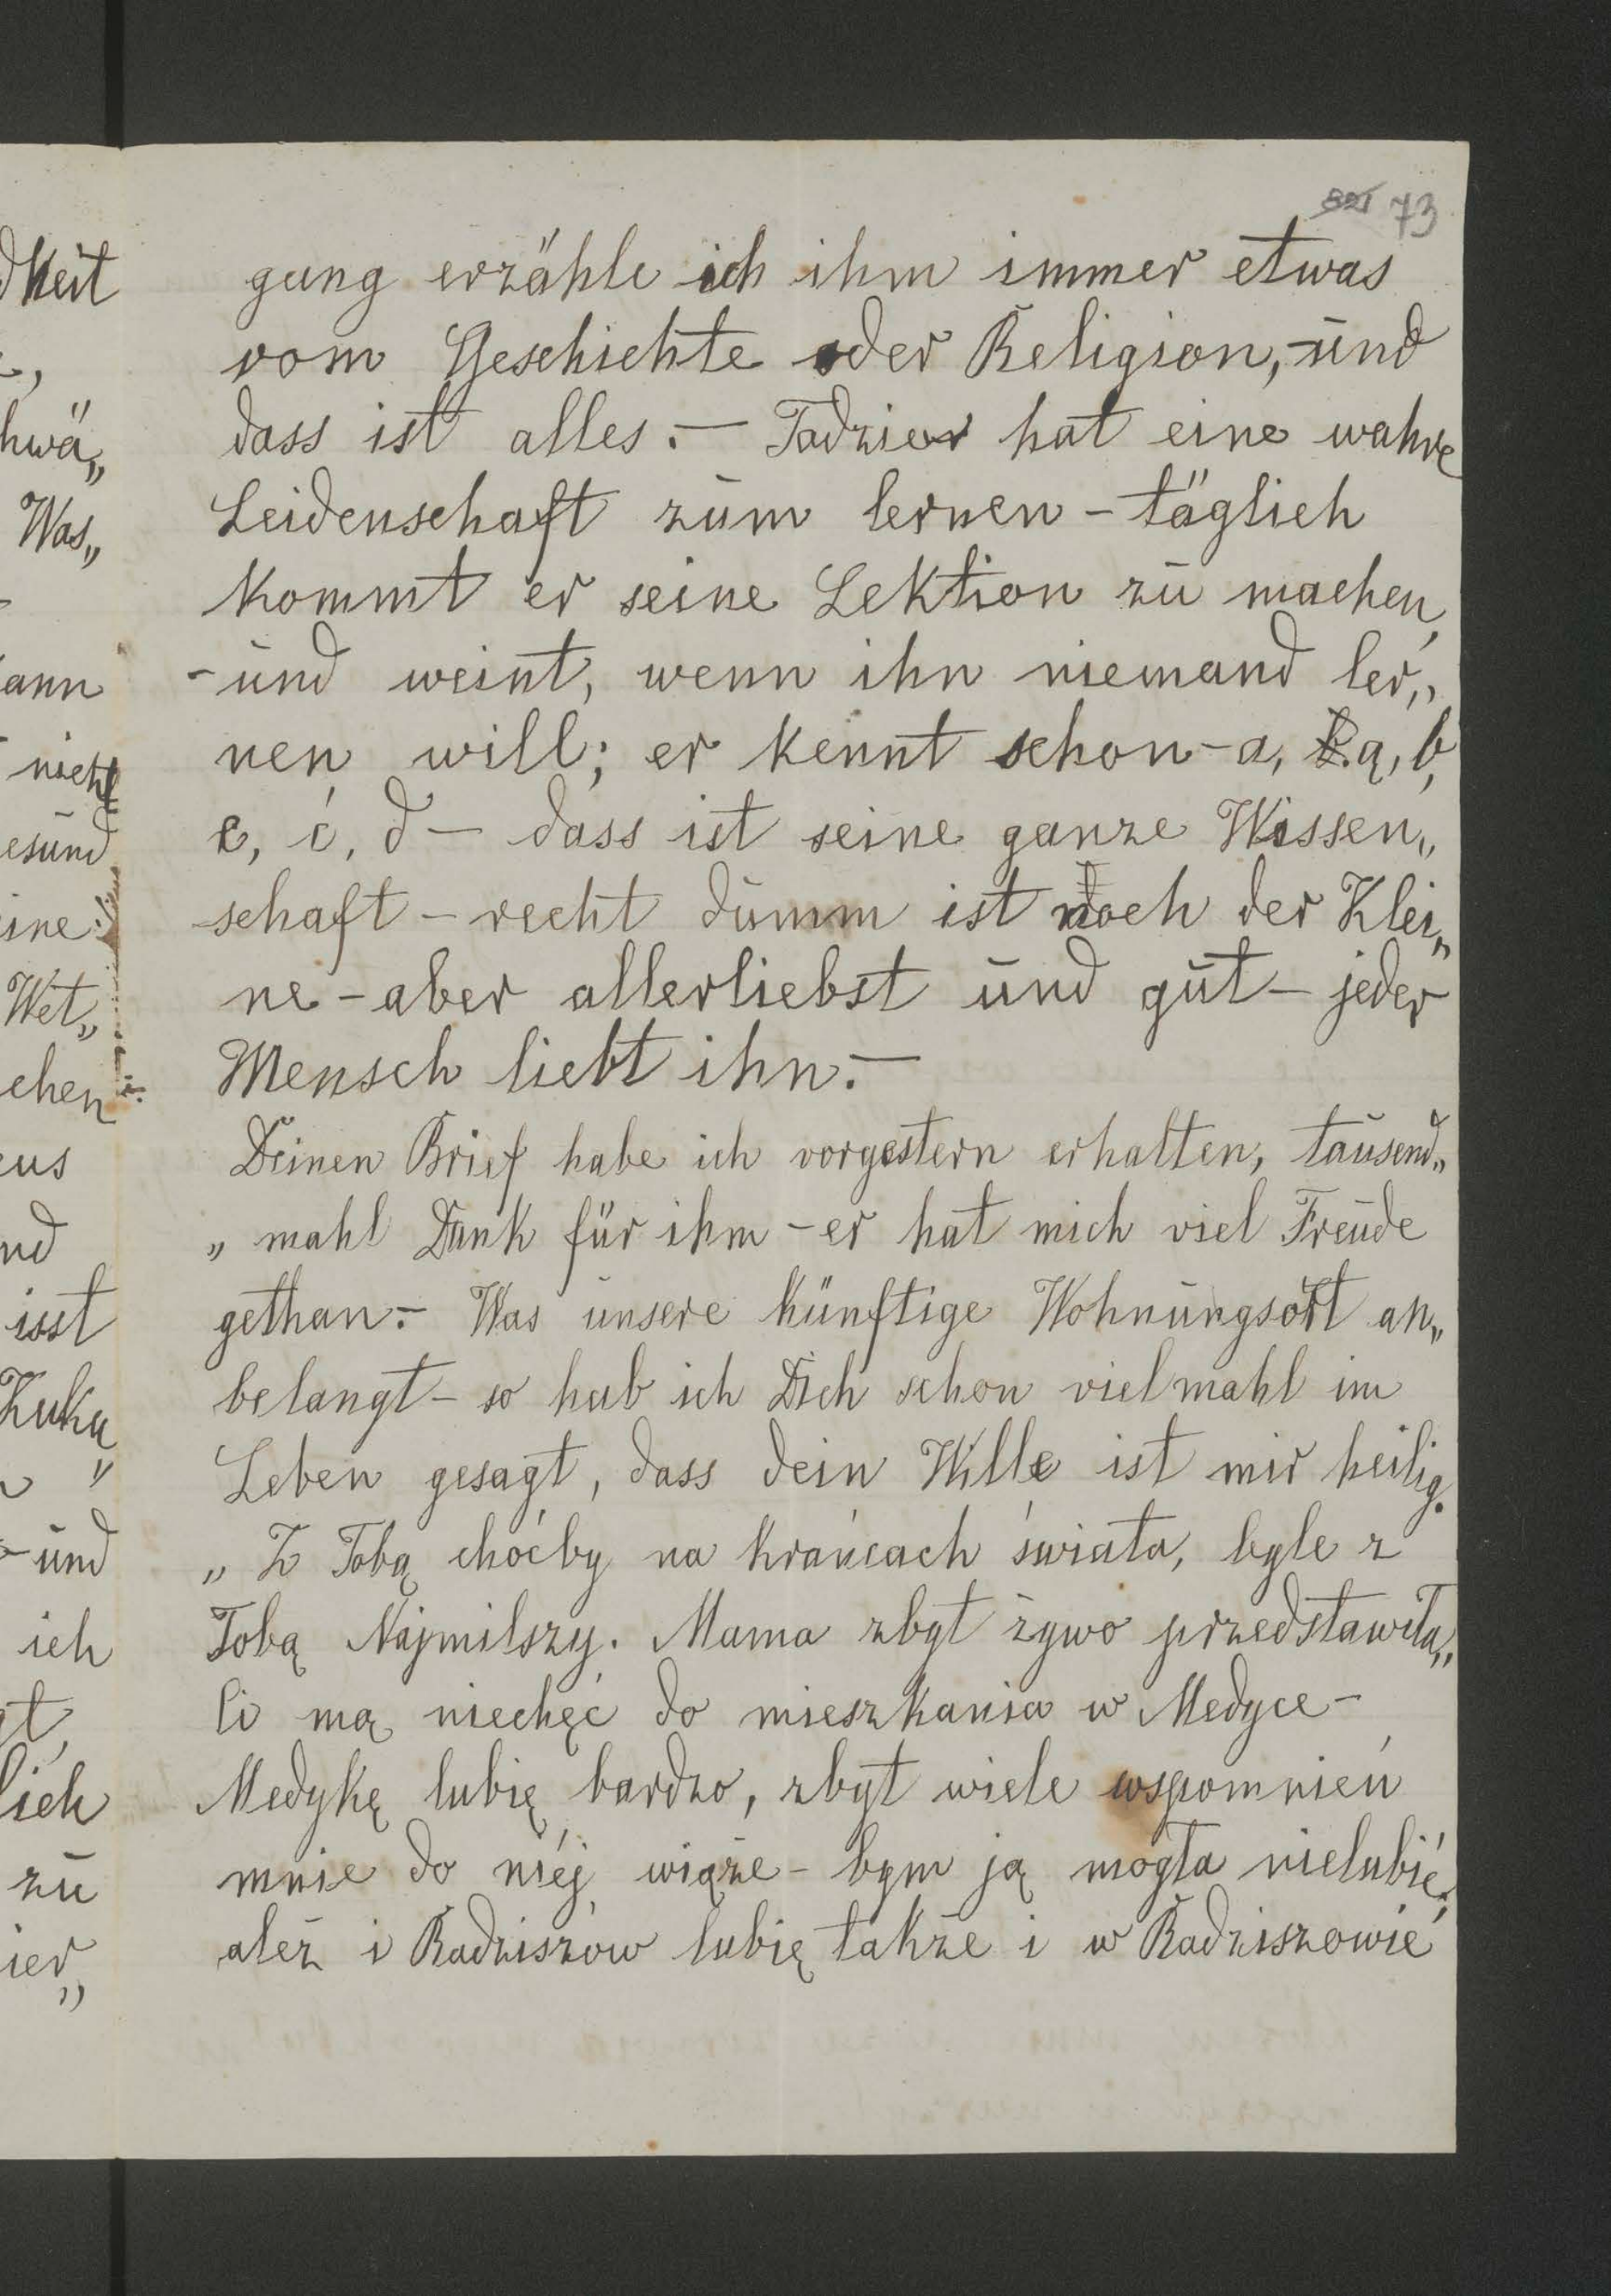 73
gung erzähle ich ihm immer etwas
vom Geschichte oder Religion, -und
dass ist alles.- Tadzier hat eine wahre
Leidenschaft zum lernen - täglich
kommt er seine Lektion zu machen,
-und weint, wenn ihn niemand ler„
nen will; er kennt schon - a, ą, b,
c, ć, d - dass ist seine ganze Wissen„
schaft - recht dumm ist noch der Klei„
ne - aber allerliebst und gut - jeder
Mensch liebt ihn.-
Deinen Brief habe ich vorgestern erhalten, tausend„
„ mahl Dank für ihm - er hat mich viel Freude
gethan.- Was unsere künftige Wohnungsort an„
belangt - so hab ich Dich schon vielmahl im
Leben gesagt, dass dein Wille ist mir heilig.
„ Z Tobą choćby na krańcach świata, byle z
Tobą Najmilszy. Mama zbyt żywo przedstawiła„
Ci mą niechęć do mieszkania w Medyce -
Medykę lubię bardzo, zbyt wiele wspomnień
mnie do niéj wiąże - bym ją mogła nielubić,
ależ i Radziszów lubię także i w Radziszowie
dkeit
hwä„
Was„
ann
nicht
esund
ine
Wet„
chen
eus
nd
isst
Kuku
„
-und
ich
gt,
lich
zu
ier„